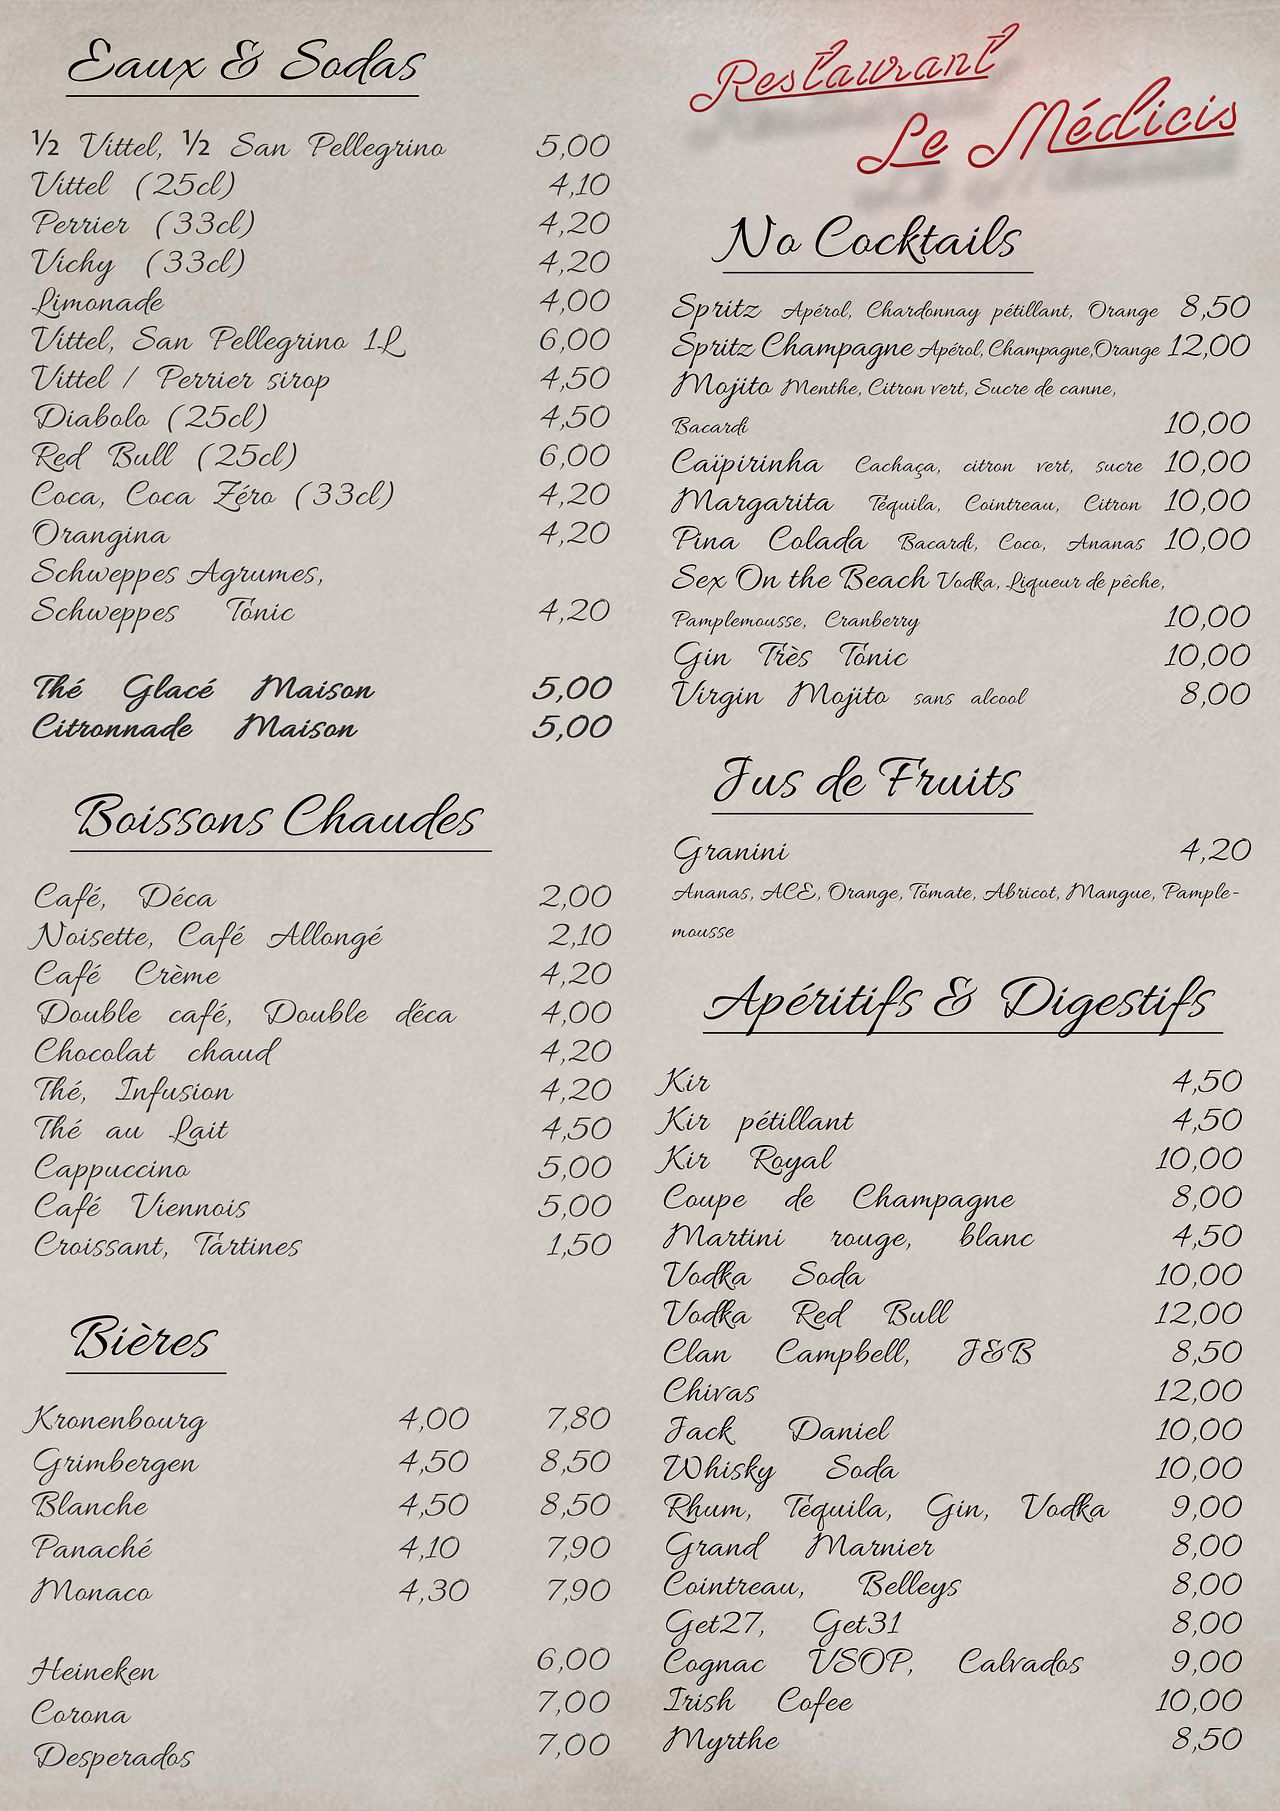 Eaux & Sodas
½ Vittel, ½ San Pellegrino 5,00
Vittel (25cl) 4,10
Perrier (33cl) 4,20
Vichy (33cl) 4,20
Limonade 4,00
Vittel, San Pellegrino 1L 6,00
Vittel / Perrier sirop 4,50
Diabolo (25cl) 4,50
Red Bull (25cl) 6,00
Coca, Coca Zéro (33cl) 4,20
Orangina 4,20
Schweppes Agrumes,
Schweppes Tonic 4,20
Thé Glacé Maison 5,00
Citronnade Maison 5,00
Boissons Chaudes
Café, Déca 2,00
Noisette, Café Allongé 2,10
Café Crème 4,20
Double café, Double déca 4,00
Chocolat chaud 4,20
Thé, Infusion 4,20
Thé au Lait 4,50
Cappuccino 5,00
Café Viennois 5,00
Croissant, Tartines 1,50
Bières
Kronenbourg 4,00 7,80
Grimbergen 4,50 8,50
Blanche 4,50 8,50
Panaché 4,10 7,90
Monaco 4,30 7,90
Heineken 6,00
Corona 7,00
Desperados 7,00
Restaurant
Le Médicis
No Cocktails
Spritz Apérol, Chardonnay pétillant, Orange 8,50
Spritz Champagne Apérol, Champagne, Orange 12,00
Mojito Menthe, Citron vert, Sucre de canne,
Bacardi 10,00
Caïpirinha Cachaça, citron vert, sucre 10,00
Margarita Téquila, Cointreau, Citron 10,00
Pina Colada Bacardi, Coco, Ananas 10,00
Sex On the Beach Vodka, Liqueur de pêche,
Pamplemousse, Cranberry 10,00
Gin Très Tonic 10,00
Virgin Mojito sans alcool 8,00
Jus de Fruits
Granini 4,20
Ananas, ACE, Orange, Tomate, Abricot, Mangue, Pample-
mousse
Apéritifs & Digestifs
Kir 4,50
Kir pétillant 4,50
Kir Royal 10,00
Coupe de Champagne 8,00
Martini rouge, blanc 4,50
Vodka Soda 10,00
Vodka Red Bull 12,00
Clan Campbell, J&B 8,50
Chivas 12,00
Jack Daniel 10,00
Whisky Soda 10,00
Rhum, Téquila, Gin, Vodka 9,00
Grand Marnier 8,00
Cointreau, Belleys 8,00
Get27, Get31 8,00
Cognac VSOP, Calvados 9,00
Irish Cofee 10,00
Myrthe 8,50